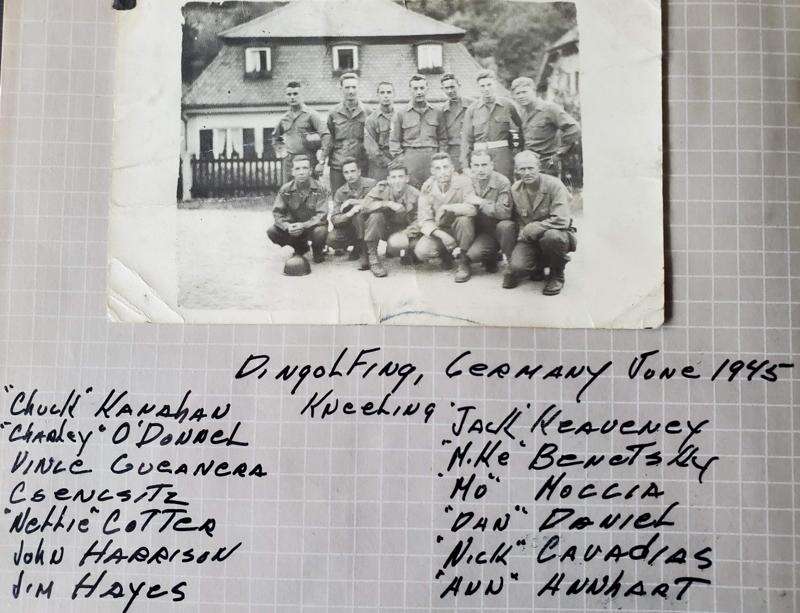 DingolFing, Germany June 1945
"Chuck" Kanahan
"Charley" O'Donnel
Vince Guganera
Csencsitz
"Nettie" Cotter
John Harrison
Jim Hayes
Kneeling
"Jack" Keaveney
"Mike" Benetsky
"Mo" Moccia
"Dan" Daniel
"Nick" Cavadias
"Ann" Annhart